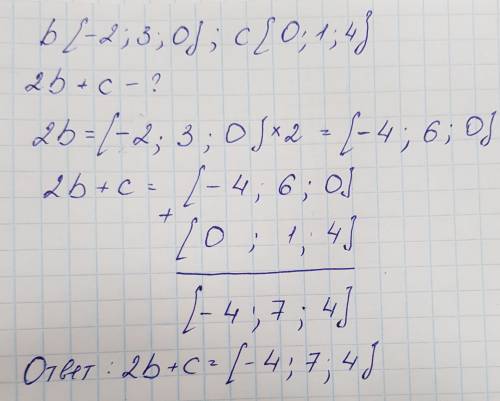 b[-2; 3; 0]; c[0; 1; 4]
2b + c - ?
2b = [-2; 3; 0] × 2 = [-4; 6; 0]
2b + c = [-4; 6; 0]
+
[0; 1; 4]
[-4; 7; 4]
Ответ: 2b + c = [-4; 7; 4]